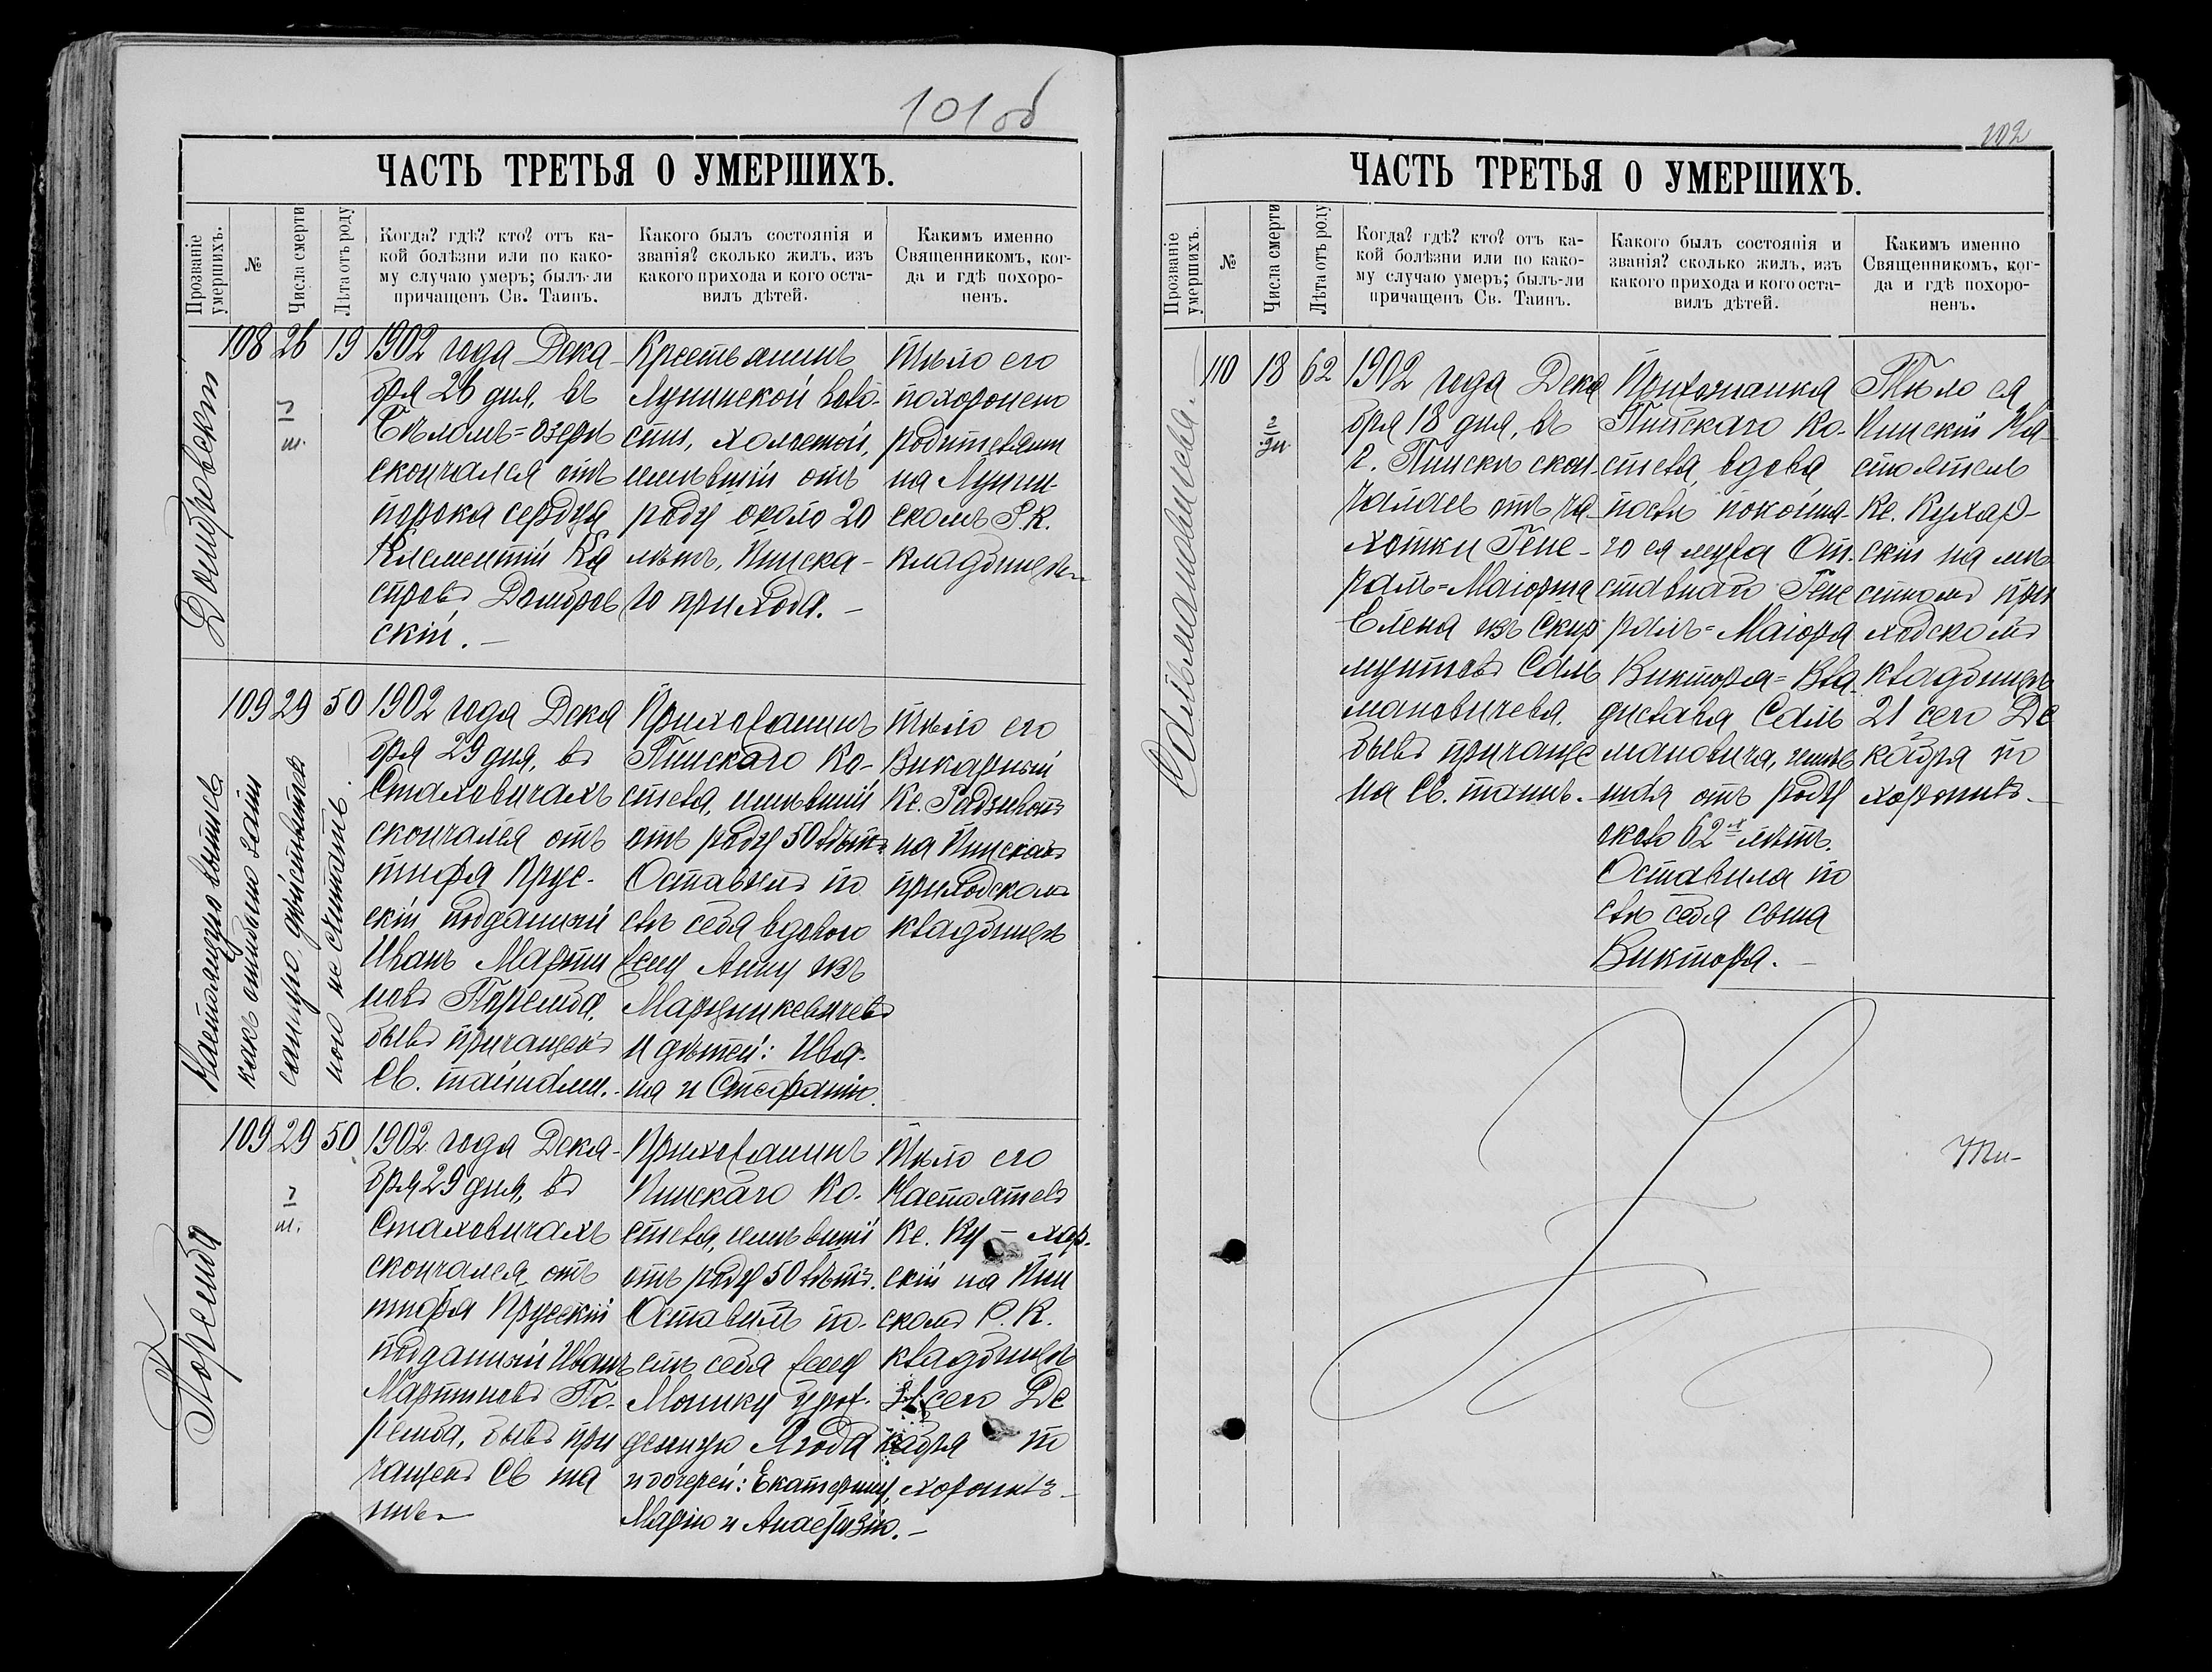 101 об
ЧАСТЬ ТРЕТЬЯ О УМЕРШИХЪ.
Прозваніе умершихъ.
№
Числа смерти
Лѣта отъ роду
Когда? гдѣ? кто? отъ ка-
кой болѣзни или по како-
му случаю умеръ; былъ-ли
причащенъ Св. Таинъ.
Какого былъ состоянія и
званія? сколько жилъ, изъ
какого прихода и кого оста-
вилъ дѣтей.
Какимъ именно
Священникомъ, ког-
да и гдѣ похоро-
ненъ.
Домбровскій
108
26
19
1902 года Дека-
бря 26 дня, въ
Бѣломъ=озерѣ
скончался отъ
порока сердца
Клементій Ка
спровъ Домбров
скій.
Крестьянинъ
Лунинской воло-
сти, холостой,
имѣвшій отъ
роду около 20
лѣтъ, Пинска-
го прихода.
Тѣло его
похоронено
родителями
на Лунин-
скомъ Р. К.
кладбищѣ
Настоящую выпись
какъ ошибочно запи
санную, дѣйствитель
ною не считать.
109
29
50
1902 года Дека
бря 29 дня, въ
Стаховичахъ
скончался отъ
тифа Прус-
скій подданный
Иванъ Марти
новъ Поремба,
бывъ причащенъ
Св. тайнами.
Прихожанинъ
Пинскаго Ко-
стела, имѣвшій
отъ роду 50 лѣтъ
Оставилъ по
слѣ себя вдовою
жену Анну изъ
Марцинкевичевъ
и дѣтей: Ива-
на и Стефанію.
Тѣло его
Викарный
Кс. Радзивонъ
на Пинскомъ
приходскомъ
кладбищѣ
Поремба
109
29
50
1902 года Дека-
бря 29 дня, въ
Стаховичахъ
скончался отъ
тифа Прусскій
подданный Иванъ
Мартиновъ По-
ремба, бывъ при
чащенъ Св та
инъ
Прихожанинъ
Пинскаго Ко-
стела, имѣвшій
отъ роду 50 лѣтъ.
Оставилъ по-
слѣ себя жену
Монику урож-
денную Ягода
и дочерей: Екатерину,
Марію и Анастазію.
Тѣло его
Настоятель
Кс. Ку — хар-
скій на Пин
скомъ Р. К.
кладбищѣ
31 сего Де
кабря по
хоронилъ
102
ЧАСТЬ ТРЕТЬЯ О УМЕРШИХЪ.
Прозваніе умершихъ.
№
Числа смерти
Лѣта отъ роду
Когда? гдѣ? кто? отъ ка-
кой болѣзни или по како-
му случаю умеръ; былъ-ли
причащенъ Св. Таинъ.
Какого былъ состоянія и
званія? сколько жилъ, изъ
какого прихода и кого оста-
вилъ дѣтей.
Какимъ именно
Священникомъ, ког-
да и гдѣ похоро-
ненъ.
Сальмановичева.
110
18
62
1902 года Дека
бря 18 дня, въ
г. Пинскѣ скон
чалась отъ ча-
хотки Гене-
ралъ=Маіорша
Елена изъ Скир
мунтовъ Саль
мановичева,
бывъ причаще
на Св. таинъ.
Прихожанка
Пинскаго Ко-
стела, вдова
послѣ покойна-
го ея мужа От-
ставнаго Гене
ралъ=Маіора
Виктора=Вла
дислава Саль
мановича, имѣв
шая отъ роду
около 62х лѣтъ.
Оставила по
слѣ себя сына
Виктора.
Тѣло ея
Пинскій На-
стоятель
Кс. Кухар-
скій на мѣ
стномъ при
ходскомъ
кладбищѣ
21 сего Де
кабря по
хоронилъ.